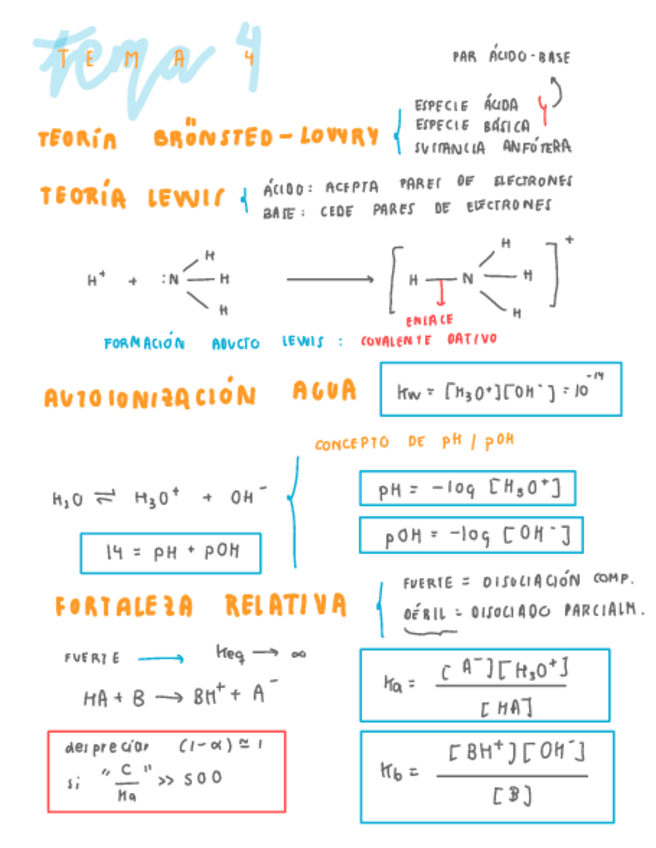 Tema 4
TEMA 4
PAR ÁCIDO-BASE
TEORÍA BRÖNSTED-LOWRY
ESPECIE ÁCIDA
ESPECIE BÁSICA
SUSTANCIA ANFÓTERA
TEORÍA LEWIS
ÁCIDO: ACEPTA PARES DE ELECTRONES
BASE: CEDE PARES DE ELECTRONES
H⁺ + :N H H H ⟶ [H — N H H H]⁺
ENLACE
FORMACIÓN ADUCTO LEWIS : COVALENTE DATIVO
AUTOIONIZACIÓN AGUA
Kw = [H₃O⁺][OH⁻] = 10⁻¹⁴
CONCEPTO DE pH / pOH
H₂O ⇌ H₃O⁺ + OH⁻
pH = -log [H₃O⁺]
pOH = -log [OH⁻]
14 = pH + pOH
FORTALEZA RELATIVA
FUERTE = DISOCIACIÓN COMP.
DÉBIL = DISOCIADO PARCIALM.
FUERTE ⟶ Keq ⟶ ∞
HA + B ⟶ BH⁺ + A⁻
Ka = [A⁻][H₃O⁺] / [HA]
despreciar (1-α) ≃ 1
si "C/Ka" >> 500
Kb = [BH⁺][OH⁻] / [B]